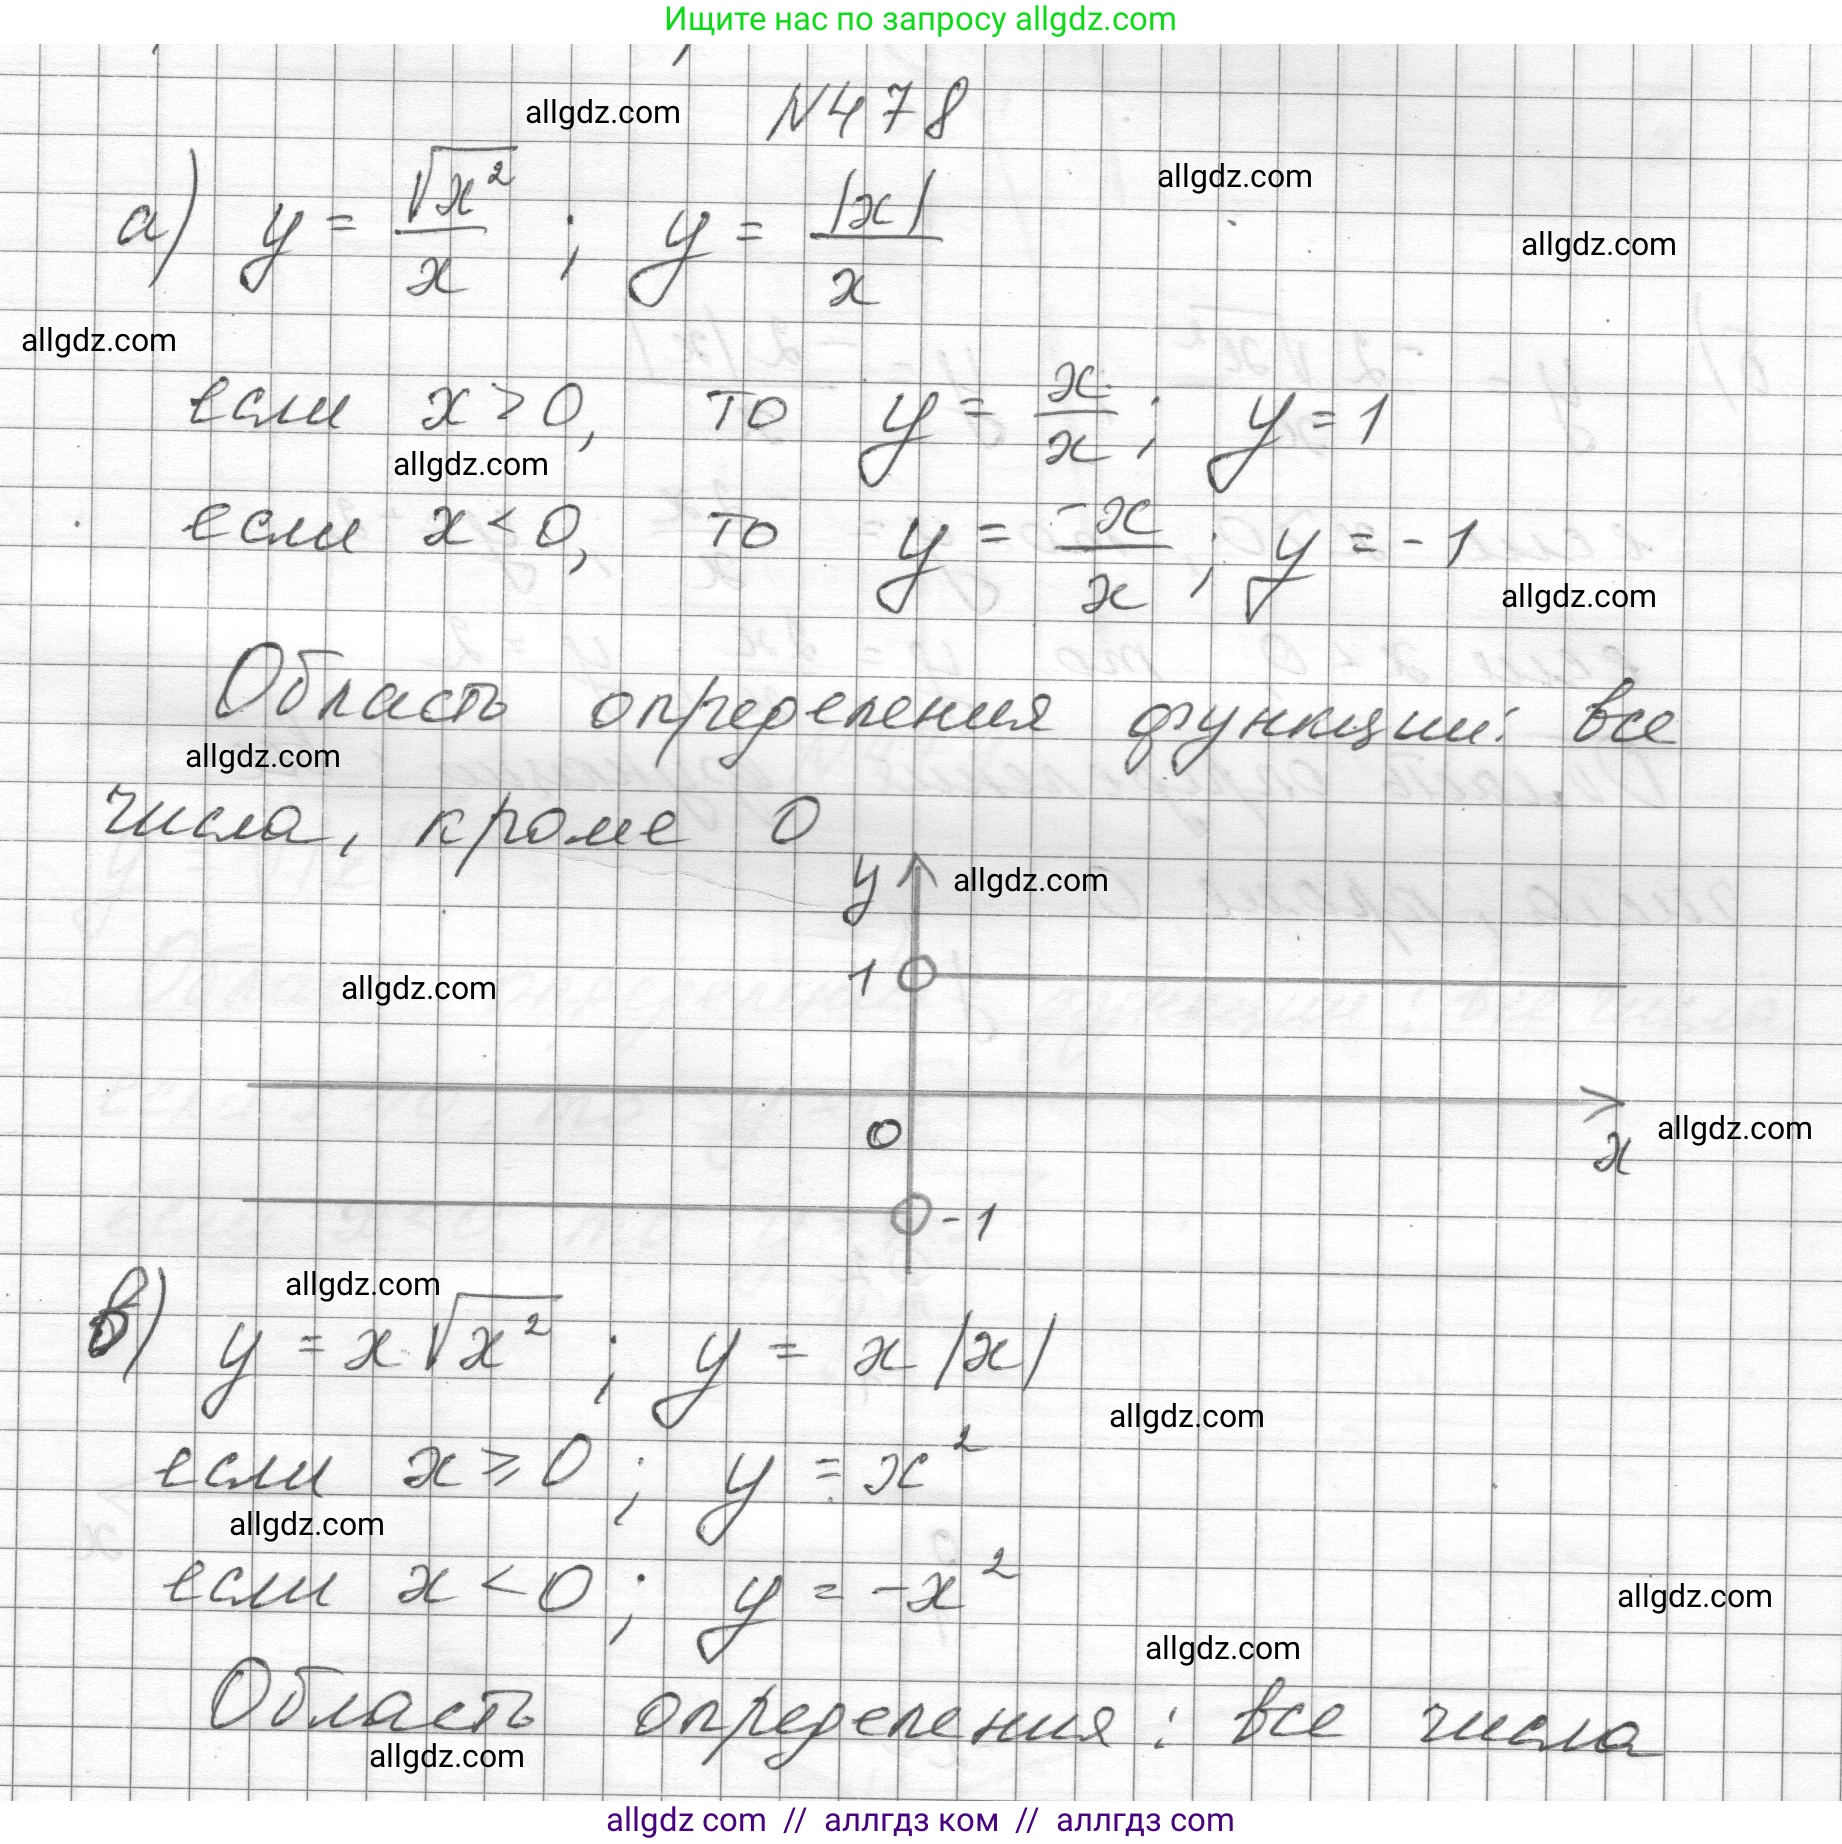 Ищите нас по запросу allgdz.com
allgdz.com
N478
allgdz.com
а) y = √x² / x ; y = |x| / x
allgdz.com
allgdz.com
если x > 0, то y = x/x ; y = 1
allgdz.com
если x < 0, то y = -x/x ; y = -1
allgdz.com
Область определения функции: все
allgdz.com
числа, кроме 0
y
allgdz.com
1
allgdz.com
0
x
allgdz.com
-1
allgdz.com
в) y = x √x² ; y = x |x|
allgdz.com
если x ⩾ 0 ; y = x²
allgdz.com
если x < 0 ; y = -x²
allgdz.com
allgdz.com
Область определения : все числа
allgdz.com
allgdz com // аллгдз ком // аллгдз com